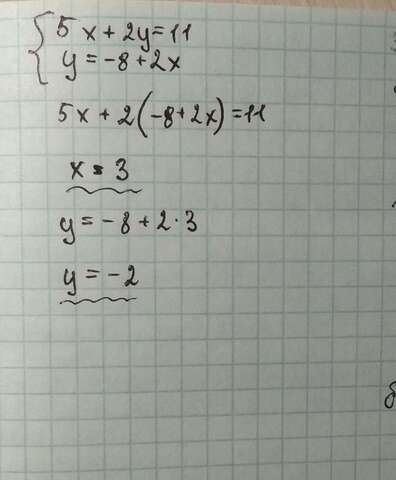 5x+2y=11
y=-8+2x
5x+2(-8+2x)=11
x=3
y=-8+2·3
y=-2